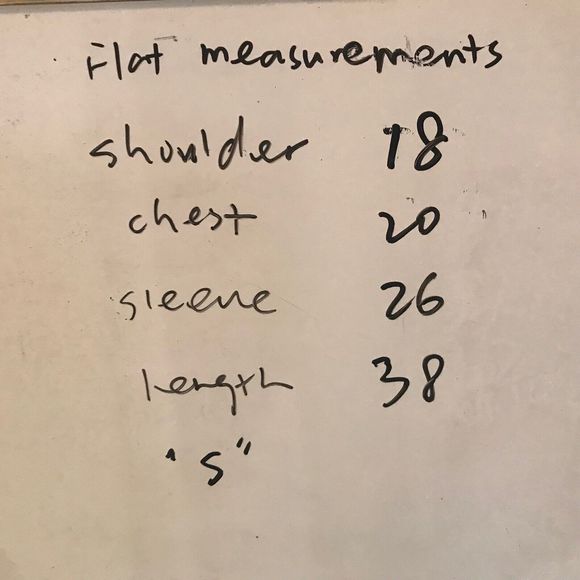 Flat measurements
shoulder 18
chest 20
sleeve 26
length 38
"S"